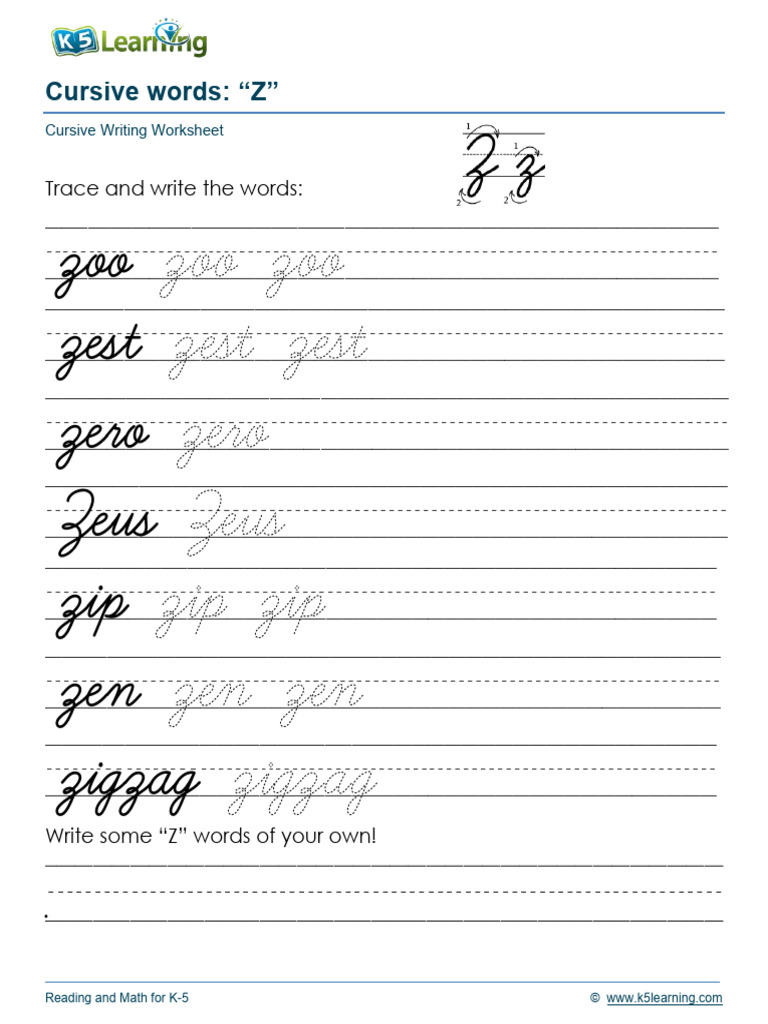 K5 Learning
Cursive words: “Z”
Cursive Writing Worksheet
1 1
Z z
2 2
Trace and write the words:
zoo zoo zoo
zest zest zest
zero zero
Zeus Zeus
zip zip zip
zen zen zen
zigzag zigzag
Write some “Z” words of your own!
Reading and Math for K-5 © www.k5learning.com